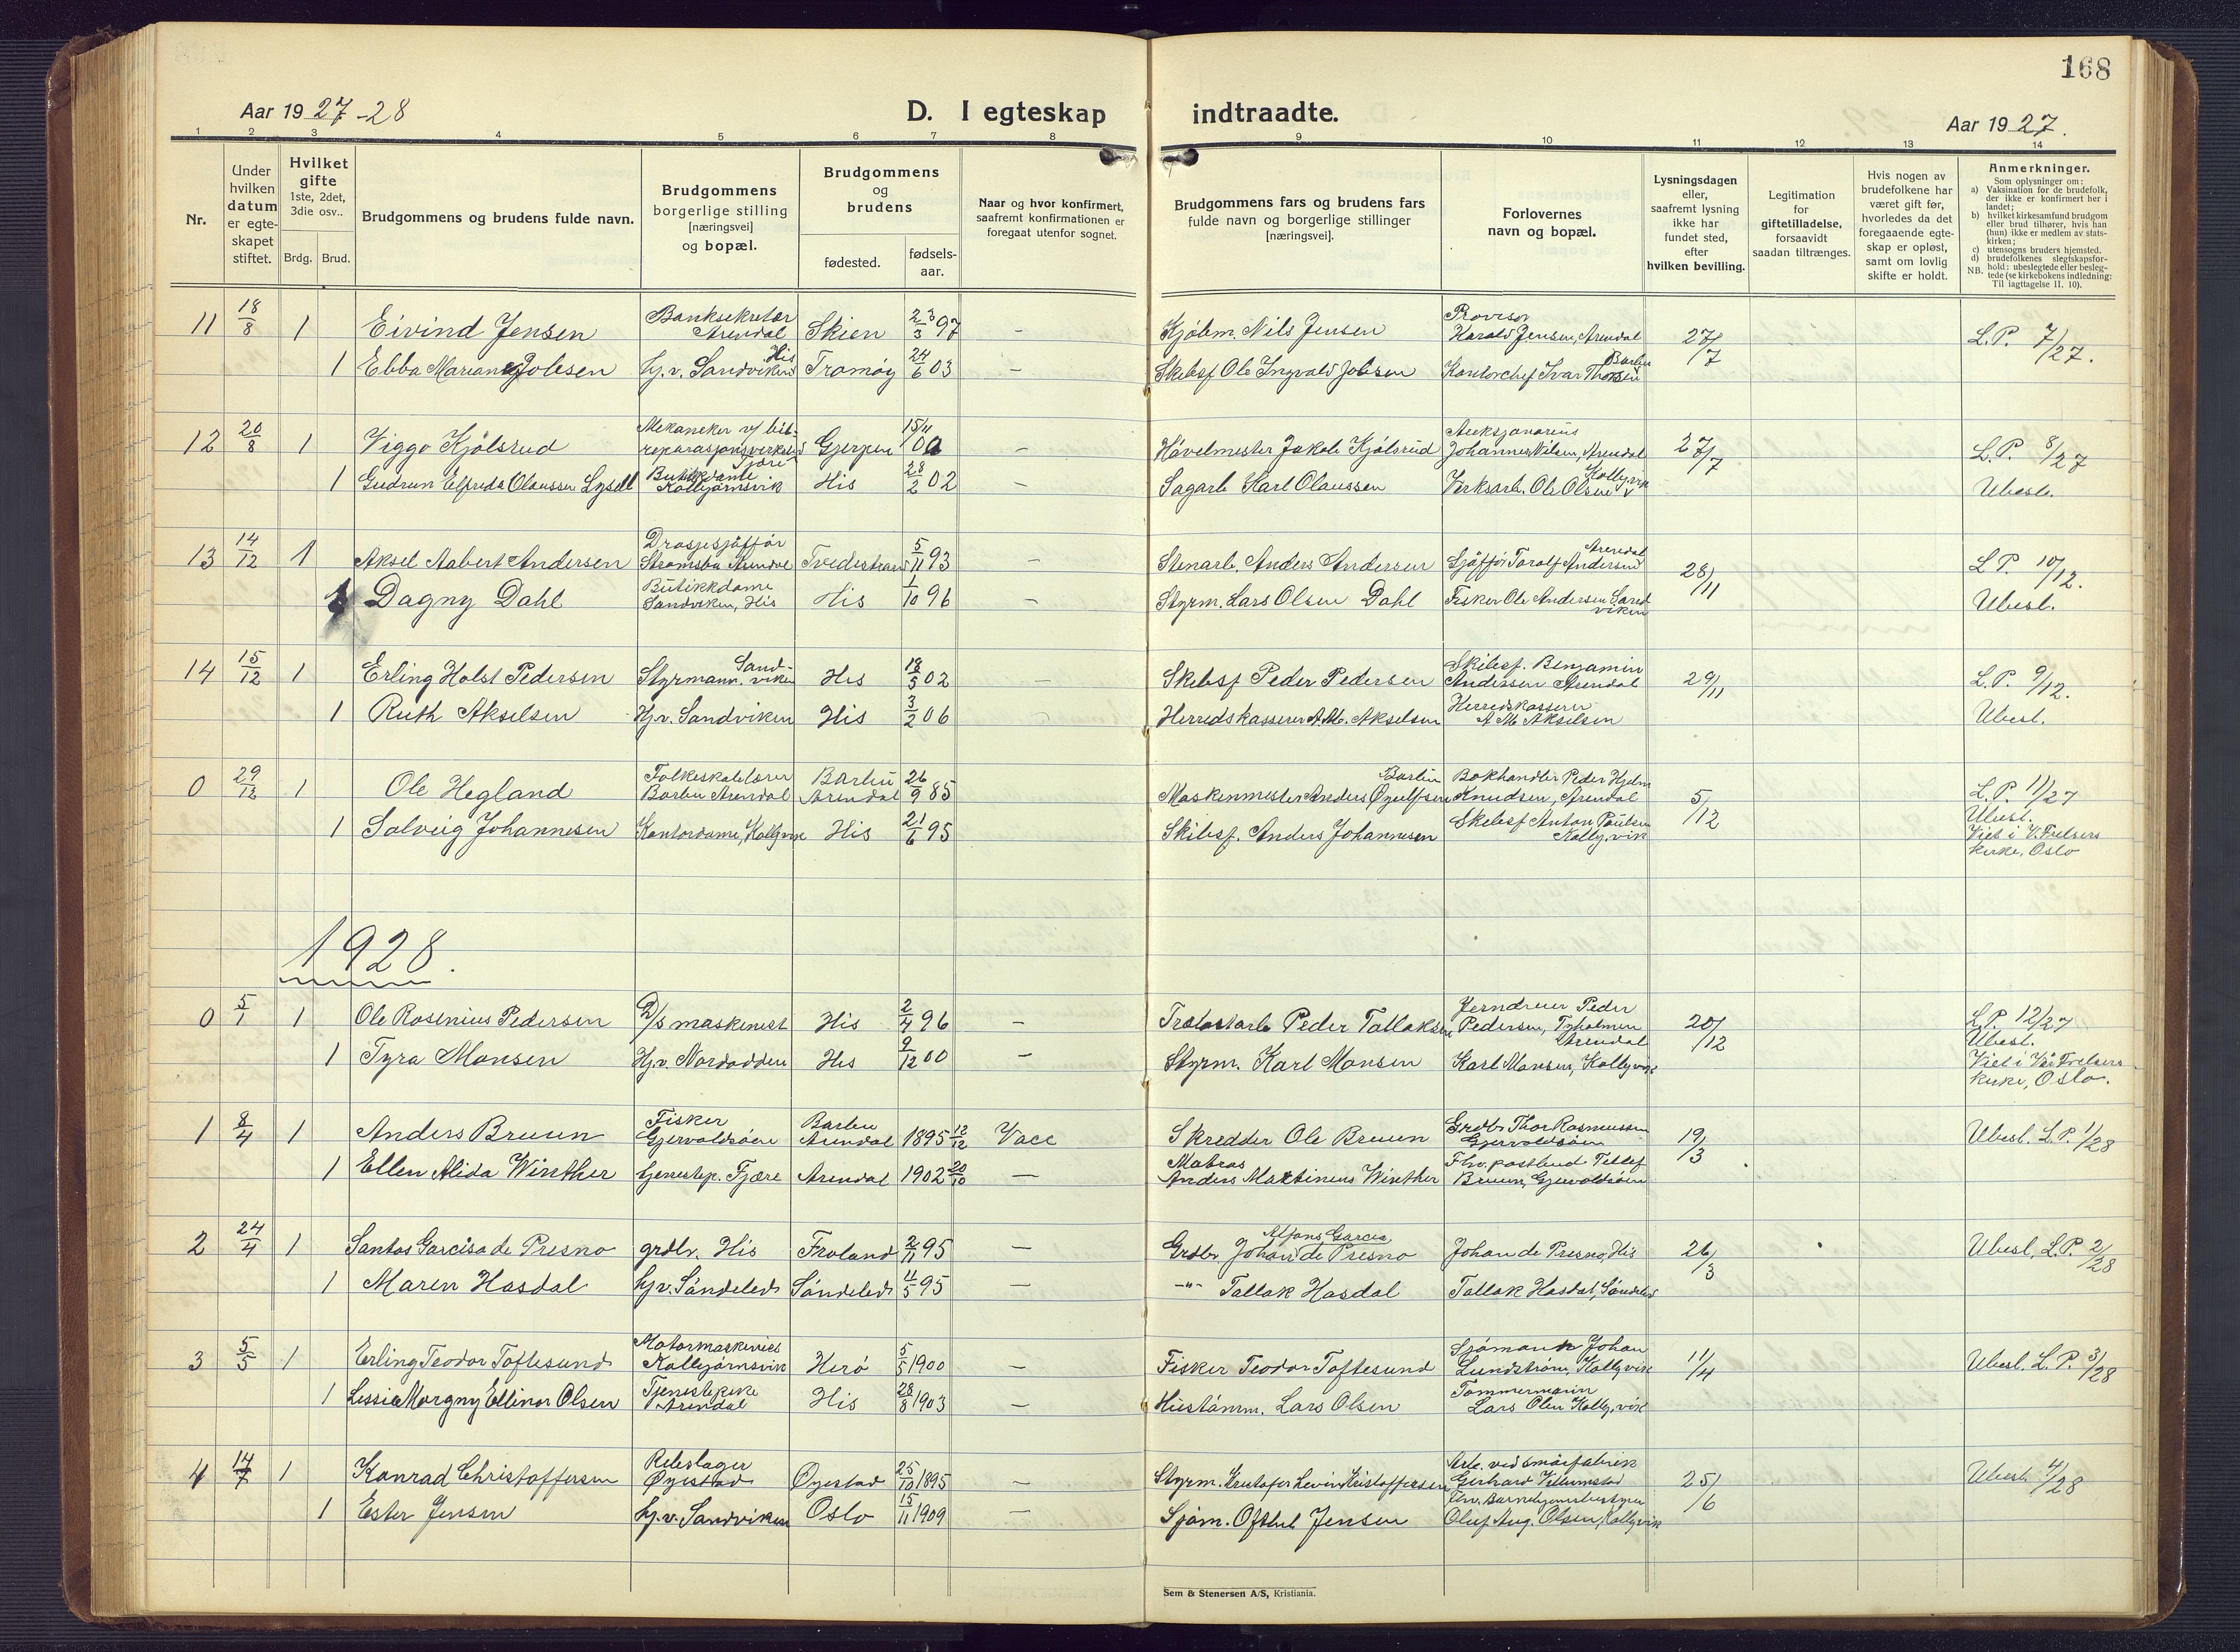 168
Aar 1927-28
D. I egteskap indtraadte.
Aar 1927.
1 2 3 4 5 6 7 8 9 10 11 12 13 14
Nr.
Under hvilken datum er egteskapet stiftet.
Hvilket gifte 1ste, 2det, 3die osv..
Brdg. Brud.
Brudgommens og brudens fulde navn.
Brudgommens borgerlige stilling [næringsvei] og bopæl.
Brudgommens og brudens
fødested. fødsels-aar.
Naar og hvor konfirmert, saafremt konfirmationen er foregaat utenfor sognet.
Brudgommens fars og brudens fars fulde navn og borgerlige stillinger [næringsvei].
Forlovernes navn og bopæl.
Lysningsdagen eller, saafremt lysning ikke har fundet sted, efter hvilken bevilling.
Legitimation for giftetilladelse, forsaavidt saadan tiltrænges.
Hvis nogen av brudefolkene har været gift før, hvorledes da det foregaaende egteskap er opløst, samt om lovlig skifte er holdt.
Anmerkninger.
Som oplysninger om:
a) Vaksination for de brudefolk, der ikke er konfirmert her i landet;
b) hvilket kirkesamfund brudgom eller brud tilhører, hvis han (hun) ikke er medlem av statskirken;
c) utensogns bruders hjemsted.
d) brudefolkenes slegtskapsforhold: ubeslegtede eller beslegtede (se kirkebokens indledning:
NB. Til iagttagelse II. 10).
11 18/8 1 Eivind Jensen Banksekretær Arendal Skien 23/3 97 – Kjøbm. Nils Jensen Provisor Harald Jensen, Arendal 27/7 L.P. 7/27.
1 Ebba Mariane Jobsen Hj.v. Sandviken His Tromøy 24/6 03 – Skibsf Ole Ingvald Jobsen Kontorchef Ivar Thorsen Barbu
12 20/8 1 Viggo Kjølsrud Mekaneker v/ bil-reparasjonsverksted Fjære Gjerpen 15/11 00 – Høvelmester Jakob Kjølsrud Auksjonarius Johannes Nilsen, Arendal 27/7 L.P. 8/27
1 Gudrun Elfreda Olaussen Lysell Butikkdame Kolbjørnsvik His 28/2 02 – Sagarb Karl Olaussen Verksarb. Ole Olsen Kolbj.vik Ubesl.
13 14/12 1 Aksel Aabert Andersen Drosjesjåffør Strømsbu Arendal Tvedestrand 5/11 93 – Stenarb. Anders Andersen Sjåffør Toralf Andersen Arendal 28/11 L.P. 10/12.
1 Dagny Dahl Butikkdame Sandviken, His His 1/10 96 – Styrm. Lars Olsen Dahl Fisker Ole Andersen Sandviken Ubesl.
14 15/12 1 Erling Holst Pedersen Styrmann. Sandviken His 18/5 02 – Skibsf Peder Pedersen Skibsf. Benjamin Andersen Arendal 29/11 L.P. 9/12.
1 Ruth Akselsen Hj.v. Sandviken His 3/2 06 – Herredskasserer A.M. Akselsen Herredskasserer A M Akselsen Ubesl.
0 29/12 1 Ole Hegland Folkeskolelærer Barbu Arendal Barbu Arendal 26/9 85 Maskinmester Anders Øyulfsen Barbu Bokhandler Peder Hjelm Knudsen, Arendal 5/12 L.P. 11/27
1 Solveig Johannesen Kontordame, Kolbj.vik His 21/6 95 Skibsf. Anders Johannesen Skibsf Anton Paulsen Kolbj.vik Ubesl. Viet i V. Frelsers kirke, Oslo
1928.
0 5/1 1 Ole Rosenius Pedersen D/s maskinist His 2/4 96 – Peder Tallaksen Jerndreier Peder Pedersen, Tyholmen Arendal 20/12 L.P. 12/27
1 Tyra Monsen Hj.v. Nordodden His 9/12 00 – Styrm. Karl Monsen Karl Monsen, Kolbj.vik Ubesl. Viet i Vår Frelsers kirke, Oslo.
1 8/4 1 Anders Bruun Fisker Gjervoldsøen Barbu Arendal 1895 12/12 Vacc Skredder Ole Bruun Grdbr. Thor Rasmussen Gjervoldsøen 19/3 Ubesl. L.P. 1/28
1 Ellen Alida Winther Tjenestep. Fjære Arendal 1902 20/10 – Matros Anders Martinius Winther Fhv. postbud Tellef Bruun, Gjervoldsøen
2 24/4 1 Santos Garcisa de Presno grdbr. His Froland 2/11 95 – Grdbr. Johan Alfons Garcia de Presno Johan de Presno, His 26/3 Ubesl. L.P. 2/28
1 Maren Hasdal hj.v. Søndeled Søndeled 11/5 95 – –"– Tallak Hasdal Tallak Hasdal, Søndeled
3 5/5 1 Erling Teodor Toftesund Motormaskinist Kolbjørnsvik Herø 5/5 1900 – Fisker Teodor Toftesund Sjømann Johan Lundstrøm, Kolbj.vik 11/4 Ubesl. L.P. 3/28
1 Lessie Margny Ellinor Olsen Tjenestepike Arendal His 28/8 1903 – Hustømm. Lars Olsen Tømmermann Lars Olsen Kolbj.vik
4 14/7 1 Konrad Christoffersen Rebslager Øyestad Øyestad 25/10 1895 – Styrm. Kristofer Levin Kristoffersen Arb. ved smørfabrik Gerhard Villumstad 25/6 Ubesl. 4/28
1 Ester Jensen hj.v. Sandviken Oslo 15/11 1909 – Sjøm. Jensen Oluf Aug. Olsen, Kolbj.vik
Sem & Stenersen A/S, Kristiania.